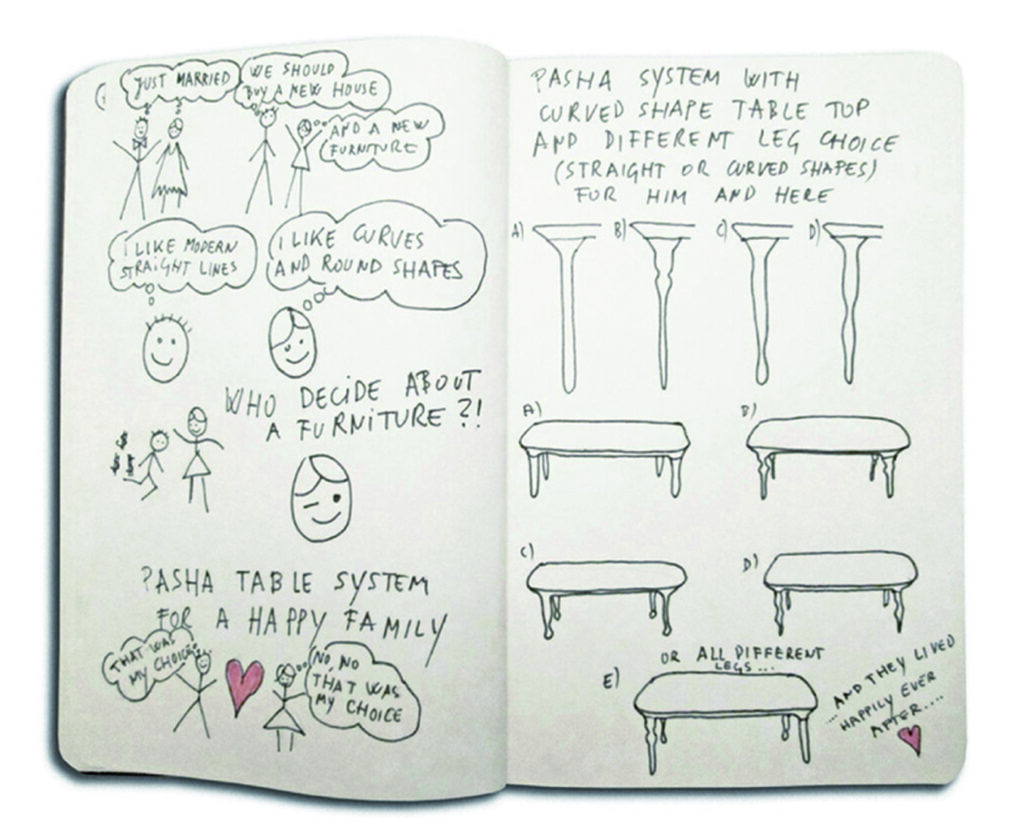 JUST MARRIED
WE SHOULD
BUY A NEW HOUSE
AND A NEW
FURNITURE
I LIKE MODERN
STRAIGHT LINES
I LIKE CURVES
AND ROUND SHAPES
WHO DECIDE ABOUT
A FURNITURE?!
$ $
$ $
PASHA TABLE SYSTEM
FOR A HAPPY FAMILY
THAT WAS
MY CHOICE
NO, NO
THAT WAS
MY CHOICE
PASHA SYSTEM WITH
CURVED SHAPE TABLE TOP
AND DIFFERENT LEG CHOICE
(STRAIGHT OR CURVED SHAPES)
FOR HIM AND HERE
A) B) C) D)
A) B)
C) D)
OR ALL DIFFERENT
LEGS...
E)
...AND THEY LIVED
HAPPILY EVER
AFTER....